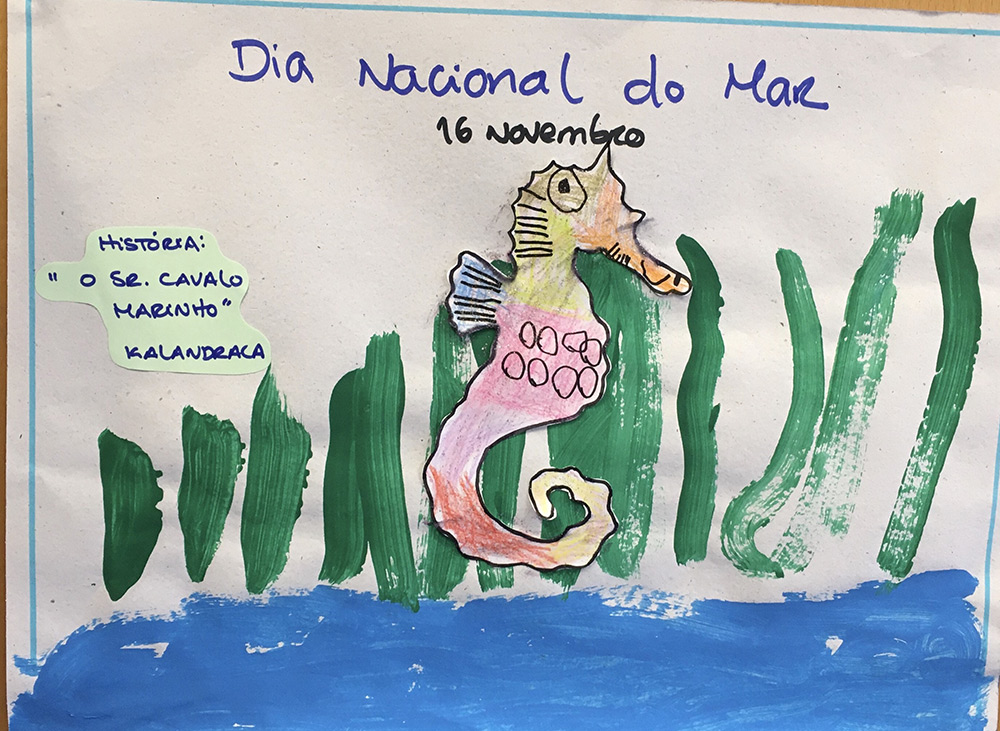 Dia Nacional do Mar
16 Novembro
História:
" O Sr. Cavalo
Marinho"
Kalandraca